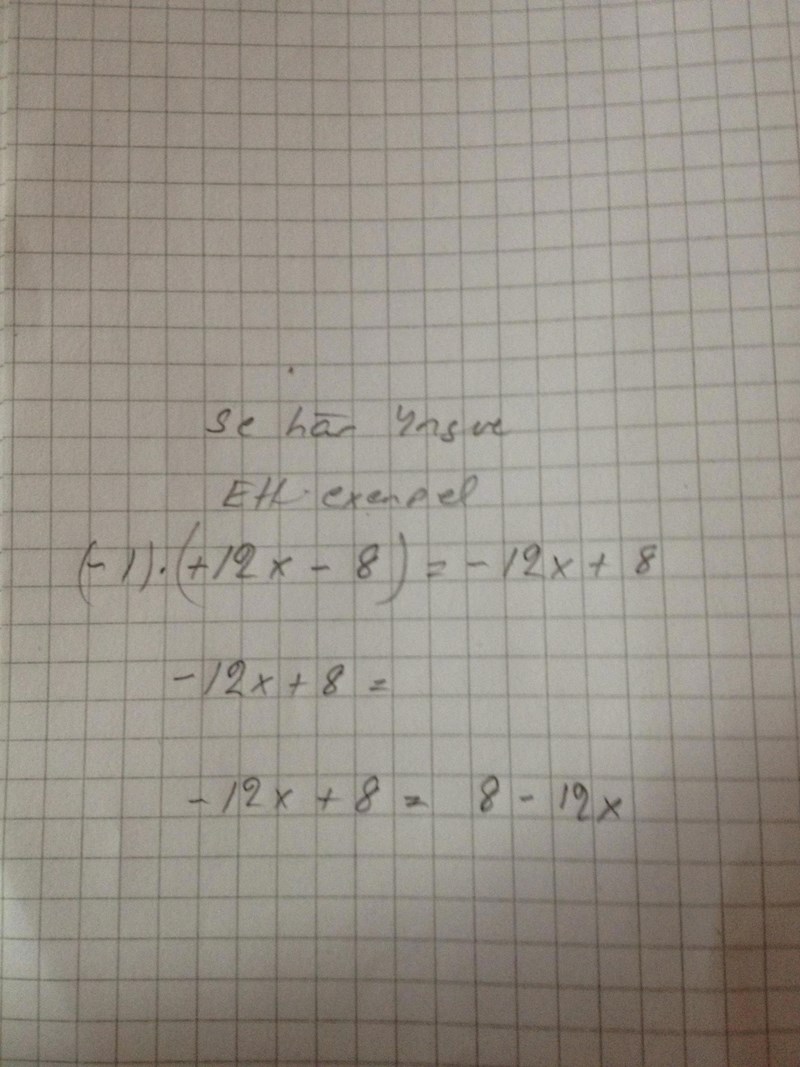 Se här Yngve
Ett exempel
(-1)·(+12x - 8) = -12x + 8
-12x + 8 =
-12x + 8 = 8 - 12x